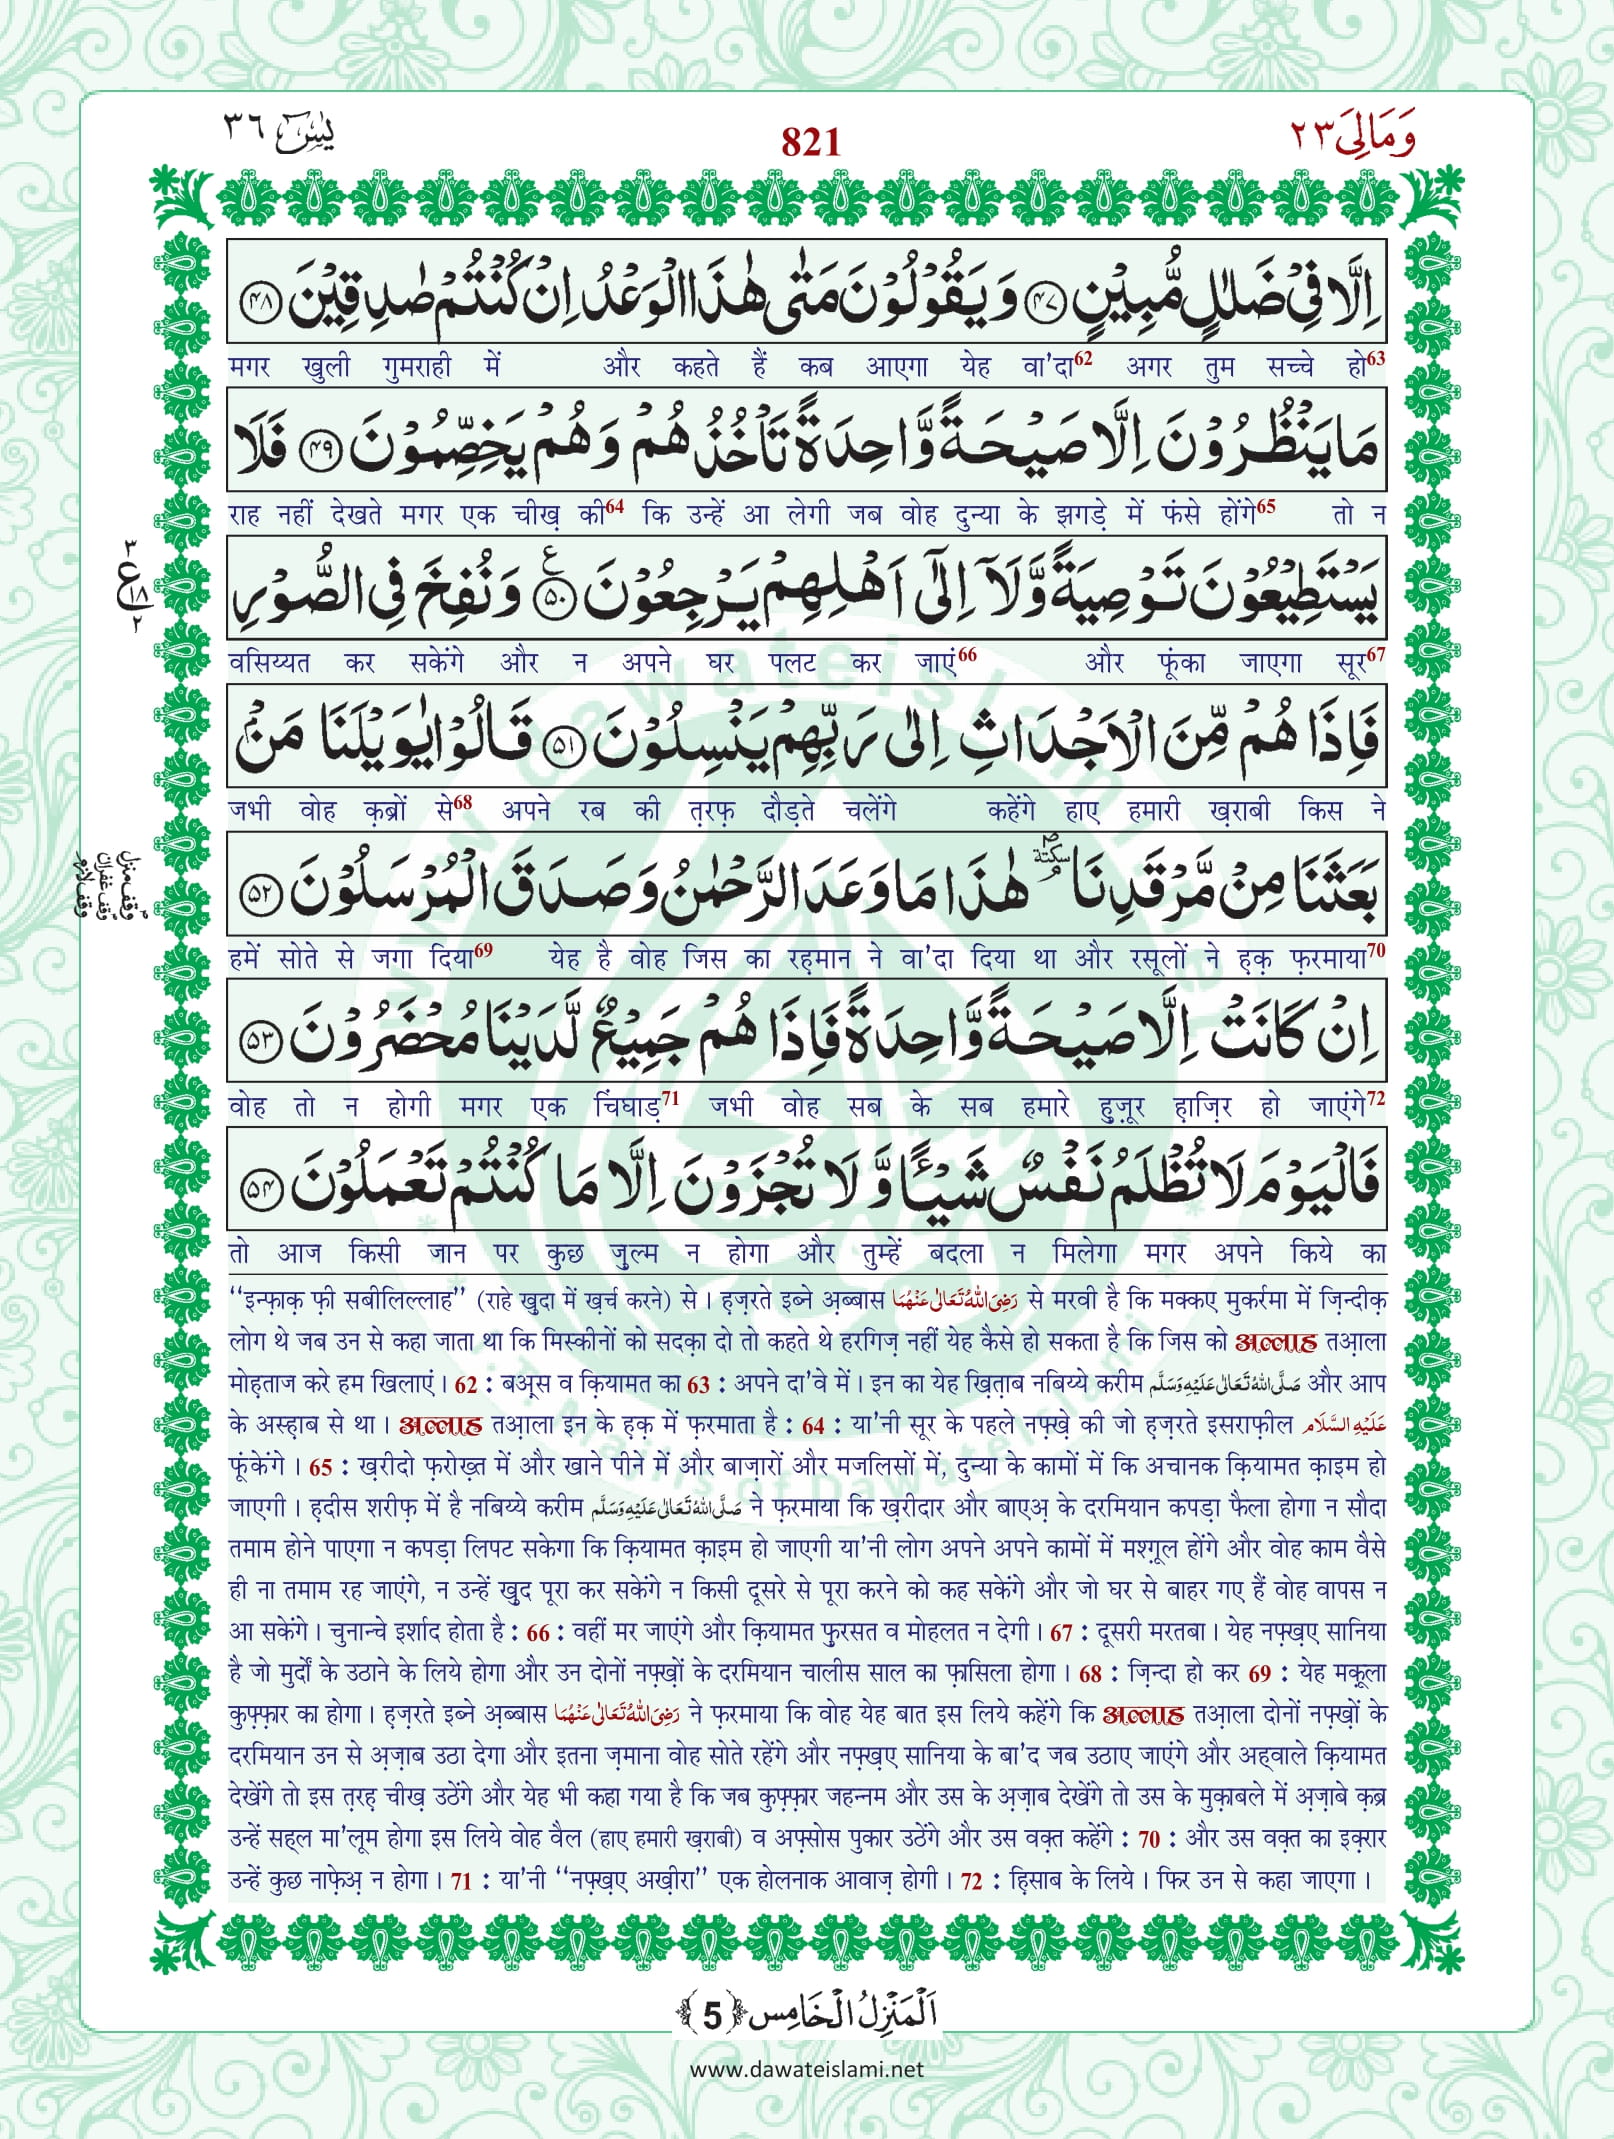 وَمَالِیَ ٢٣
821
یٰسٓ ٣٦
اِلَّا فِیْ ضَلٰلٍ مُّبِیْنٍ ﴿۴۷﴾ وَ یَقُوْلُوْنَ مَتٰی هٰذَا الْوَعْدُ اِنْ كُنْتُمْ صٰدِقِیْنَ ﴿۴۸﴾
मगर खुली गुमराही में और कहते हैं कब आएगा येह वा'दा62 अगर तुम सच्चे हो63
مَا یَنْظُرُوْنَ اِلَّا صَیْحَةً وَّاحِدَةً تَاْخُذُهُمْ وَ هُمْ یَخِصِّمُوْنَ ﴿۴۹﴾ فَلَا
राह नहीं देखते मगर एक चीख़ की64 कि उन्हें आ लेगी जब वोह दुन्या के झगड़े में फंसे होंगे65 तो न
یَسْتَطِیْعُوْنَ تَوْصِیَةً وَّ لَاۤ اِلٰۤی اَهْلِهِمْ یَرْجِعُوْنَ ﴿۵۰﴾ ع وَ نُفِخَ فِی الصُّوْرِ
٣
ع
١٨
٢
वसिय्यत कर सकेंगे और न अपने घर पलट कर जाएं66 और फूंका जाएगा सूर67
فَاِذَا هُمْ مِّنَ الْاَجْدَاثِ اِلٰی رَبِّهِمْ یَنْسِلُوْنَ ﴿۵۱﴾ قَالُوْا یٰوَیْلَنَا مَنْۢ
जभी वोह क़ब्रों से68 अपने रब की त़रफ़ दौड़ते चलेंगे कहेंगे हाए हमारी ख़राबी किस ने
بَعَثَنَا مِنْ مَّرْقَدِنَا ٚۘ سكتة هٰذَا مَا وَعَدَ الرَّحْمٰنُ وَ صَدَقَ الْمُرْسَلُوْنَ ﴿۵۲﴾
وقف منزل
وقف غفران
وقف لازم
हमें सोते से जगा दिया69 येह है वोह जिस का रह़मान ने वा'दा दिया था और रसूलों ने ह़क़ फ़रमाया70
اِنْ كَانَتْ اِلَّا صَیْحَةً وَّاحِدَةً فَاِذَا هُمْ جَمِیْعٌ لَّدَیْنَا مُحْضَرُوْنَ ﴿۵۳﴾
वोह तो न होगी मगर एक चिंघाड़71 जभी वोह सब के सब हमारे हुज़ूर ह़ाज़िर हो जाएंगे72
فَالْیَوْمَ لَا تُظْلَمُ نَفْسٌ شَیْـًٔا وَّ لَا تُجْزَوْنَ اِلَّا مَا كُنْتُمْ تَعْمَلُوْنَ ﴿۵۴﴾
तो आज किसी जान पर कुछ ज़ुल्म न होगा और तुम्हें बदला न मिलेगा मगर अपने किये का
“इन्फ़ाक़ फ़ी सबीलिल्लाह” (राहे खुदा में ख़र्च करने) से । ह़ज़रते इब्ने अ़ब्बास رَضِیَ اللهُ تَعَالٰی عَنْهُمَا से मरवी है कि मक्कए मुकर्रमा में ज़िन्दीक़
लोग थे जब उन से कहा जाता था कि मिस्कीनों को सदक़ा दो तो कहते थे हरगिज़ नहीं येह कैसे हो सकता है कि जिस को अल्लाह तआ़ला
मोह़ताज करे हम खिलाएं । 62 : बअ़्स व क़ियामत का 63 : अपने दा'वे में । इन का येह ख़ित़ाब नबिय्ये करीम صَلَّی اللهُ تَعَالٰی عَلَیْهِ وَسَلَّم और आप
के अस्ह़ाब से था । अल्लाह तआ़ला इन के ह़क़ में फ़रमाता है : 64 : या'नी सूर के पहले नफ़्ख़े की जो ह़ज़रते इसराफ़ील عَلَیْهِ السَّلَام
फूंकेंगे । 65 : ख़रीदो फ़रोख़्त में और खाने पीने में और बाज़ारों और मजलिसों में, दुन्या के कामों में कि अचानक क़ियामत क़ाइम हो
जाएगी । ह़दीस शरीफ़ में है नबिय्ये करीम صَلَّی اللهُ تَعَالٰی عَلَیْهِ وَسَلَّم ने फ़रमाया कि ख़रीदार और बाएअ़ के दरमियान कपड़ा फैला होगा न सौदा
तमाम होने पाएगा न कपड़ा लिपट सकेगा कि क़ियामत क़ाइम हो जाएगी या'नी लोग अपने अपने कामों में मश्ग़ूल होंगे और वोह काम वैसे
ही ना तमाम रह जाएंगे, न उन्हें खुद पूरा कर सकेंगे न किसी दूसरे से पूरा करने को कह सकेंगे और जो घर से बाहर गए हैं वोह वापस न
आ सकेंगे । चुनान्चे इर्शाद होता है : 66 : वहीं मर जाएंगे और क़ियामत फुरसत व मोहलत न देगी । 67 : दूसरी मरतबा । येह नफ़्ख़ए सानिया
है जो मुर्दों के उठाने के लिये होगा और उन दोनों नफ़्ख़ों के दरमियान चालीस साल का फ़ासिला होगा । 68 : ज़िन्दा हो कर 69 : येह मक़ूला
कुफ़्फ़ार का होगा । ह़ज़रते इब्ने अ़ब्बास رَضِیَ اللهُ تَعَالٰی عَنْهُمَا ने फ़रमाया कि वोह येह बात इस लिये कहेंगे कि अल्लाह तआ़ला दोनों नफ़्ख़ों के
दरमियान उन से अ़ज़ाब उठा देगा और इतना ज़माना वोह सोते रहेंगे और नफ़्ख़ए सानिया के बा'द जब उठाए जाएंगे और अह्वाले क़ियामत
देखेंगे तो इस त़रह़ चीख़ उठेंगे और येह भी कहा गया है कि जब कुफ़्फ़ार जहन्नम और उस के अ़ज़ाब देखेंगे तो उस के मुक़ाबले में अ़ज़ाबे क़ब्र
उन्हें सह्ल मा'लूम होगा इस लिये वोह वैल (हाए हमारी ख़राबी) व अफ़्सोस पुकार उठेंगे और उस वक़्त कहेंगे : 70 : और उस वक़्त का इक़्रार
उन्हें कुछ नाफ़ेअ़ न होगा । 71 : या'नी “नफ़्ख़ए अख़ीरा” एक होलनाक आवाज़ होगी । 72 : ह़िसाब के लिये । फिर उन से कहा जाएगा ।
اَلْمَنْزِلُ الْخَامِس ﴿5﴾
www.dawateislami.net